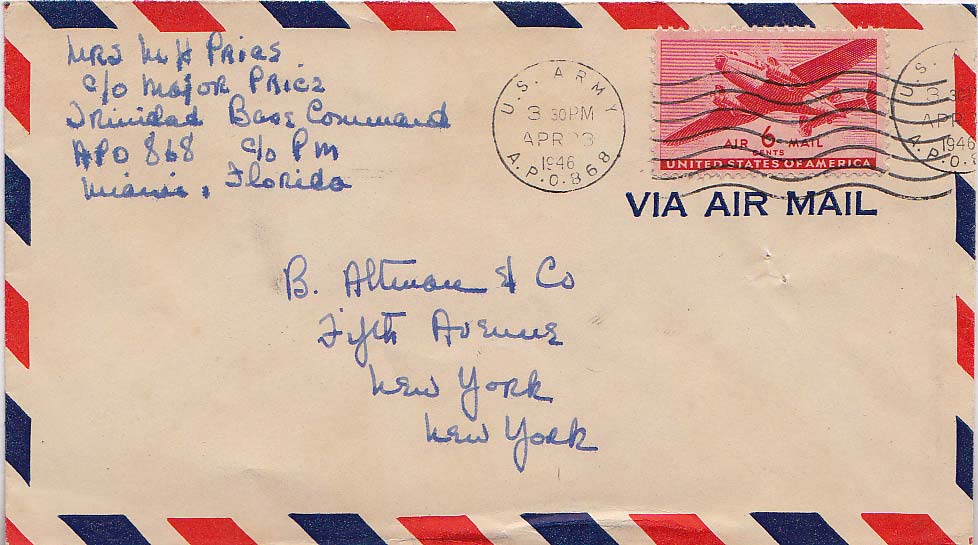 MRS M H PRICE
c/o Major PRICE
Trinidad Base Command
APO 868 c/o P M
Miami, Florida
U.S. ARMY
3 30PM
APR 23
1946
A.P.O. 868
AIR 6 MAIL
CENTS
UNITED STATES OF AMERICA
U.S.
3 30
APR
1946
A.P.O.
VIA AIR MAIL
B. Altman & Co
Fifth Avenue
New York
New York